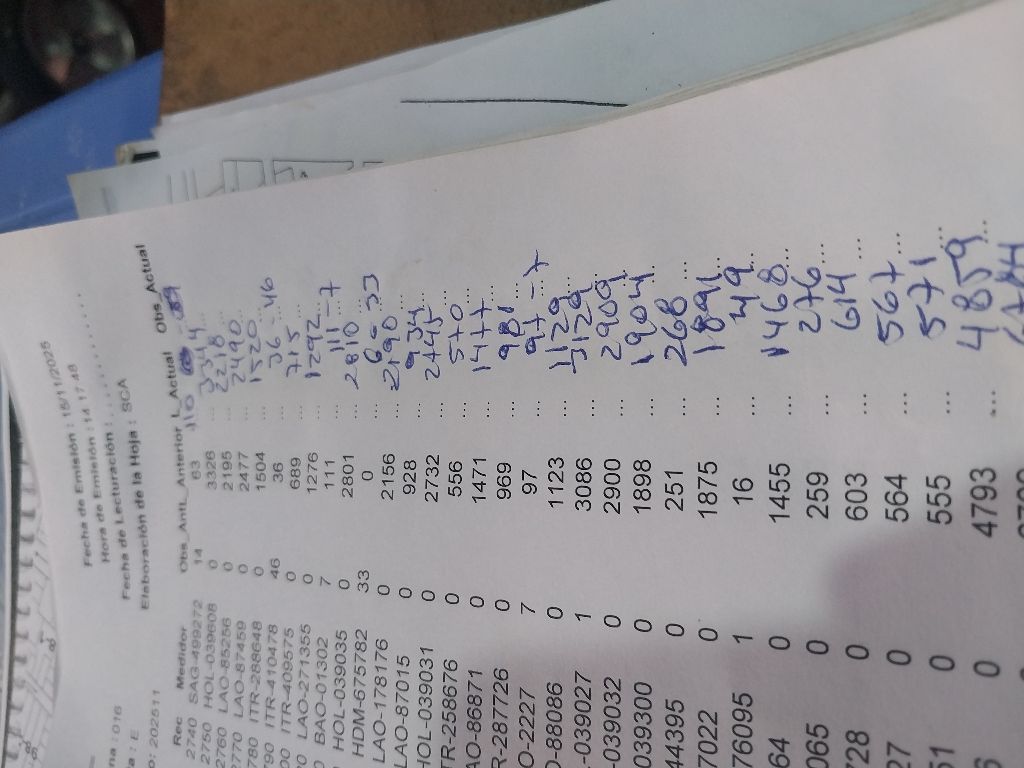 na : 016
la : E
o: 202511
Fecha de Emisión : 15/11/2025
Hora de Emisión : 14:17:48
Fecha de Lecturación : ..........
Elaboración de la Hoja : SCA
Rec Medidor Obs_Ant L_Anterior L_Actual Obs_Actual
2740 SAG-499272 14 63 110
2750 HOL-039608 0 3326 ...
2760 LAO-85256 0 2195 ... 2218
2770 LAO-87459 0 2477 ... 2490
780 ITR-288648 0 1504 ... 1520
790 ITR-410478 46 36 ... 36 - 46
00 ITR-409675 0 689 ... 715
0 LAO-271355 0 1276 ... 1292
0 BAO-01302 7 111 ... 111 - 7
HOL-039035 0 2801 ... 2810
HDM-675782 33 0 ... 0 - 33
LAO-178176 0 2156 ... 2190
LAO-87015 0 928 ... 934
HOL-039031 0 2732 ... 2745
TR-258676 0 556 ... 570
AO-86871 0 1471 ... 1477
R-287726 0 969 ... 981
O-2227 7 97 ... 97 - 7
O-88086 0 1123 ... 1129
-039027 1 3086 ... 3129
-039032 0 2900 ... 2909
039300 0 1898 ... 1904
44395 0 251 ... 268
7022 0 1875 ... 1891
76095 1 16 ... 49
64 0 1455 ... 1468
065 0 259 ... 276
728 0 603 ... 614
27 0 564 ... 567
51 0 555 ... 571
6 0 4793 ... 4859